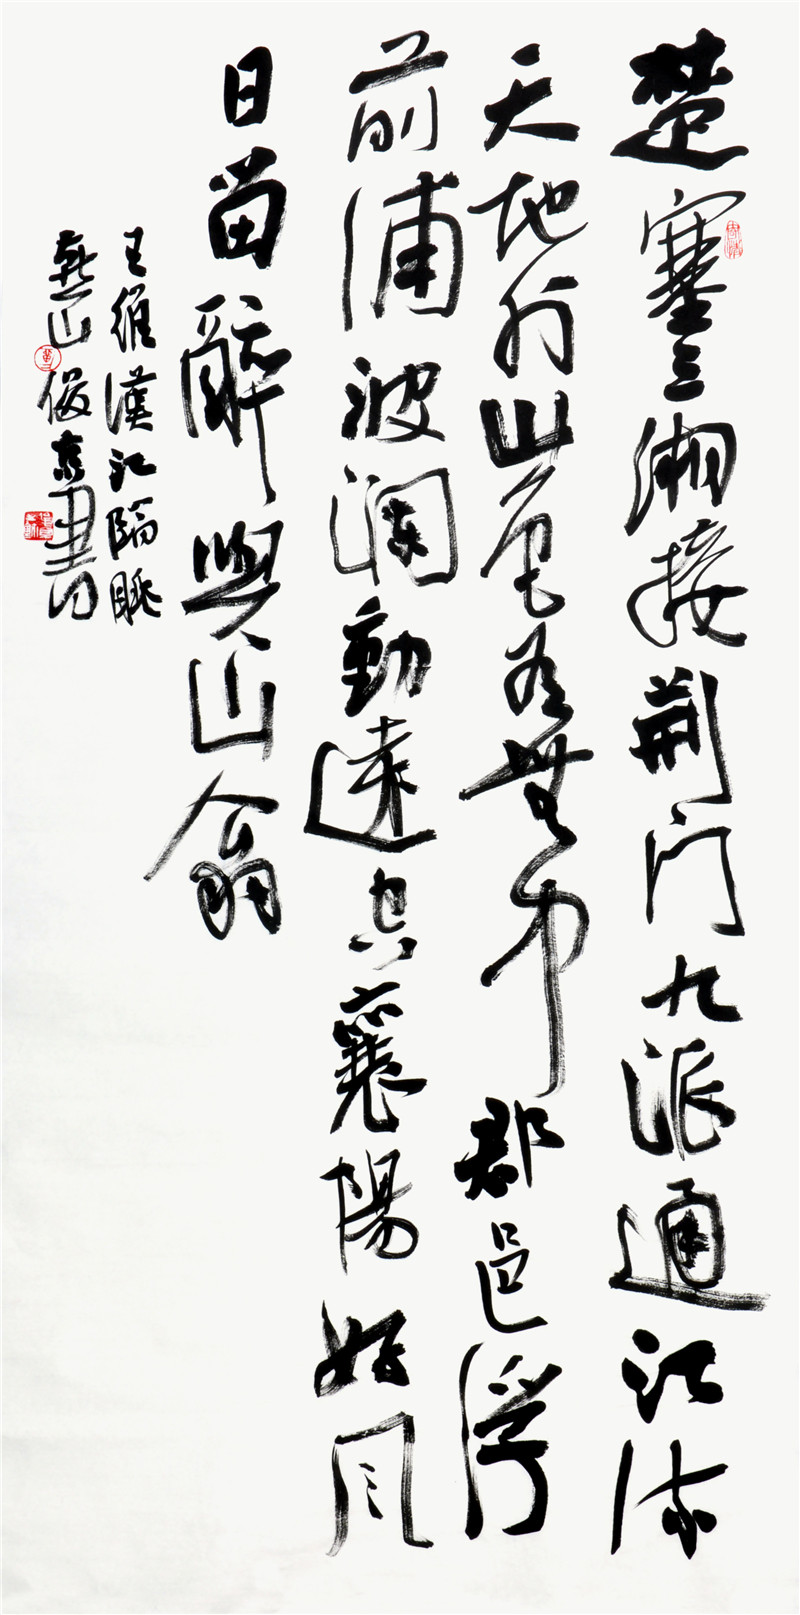 楚塞三湘接荆门九派通江流
天地外山色有無中郡邑浮
前浦波瀾動遠空襄陽好風
日留醉與山翁
王維漢江臨眺
燕山俊京書